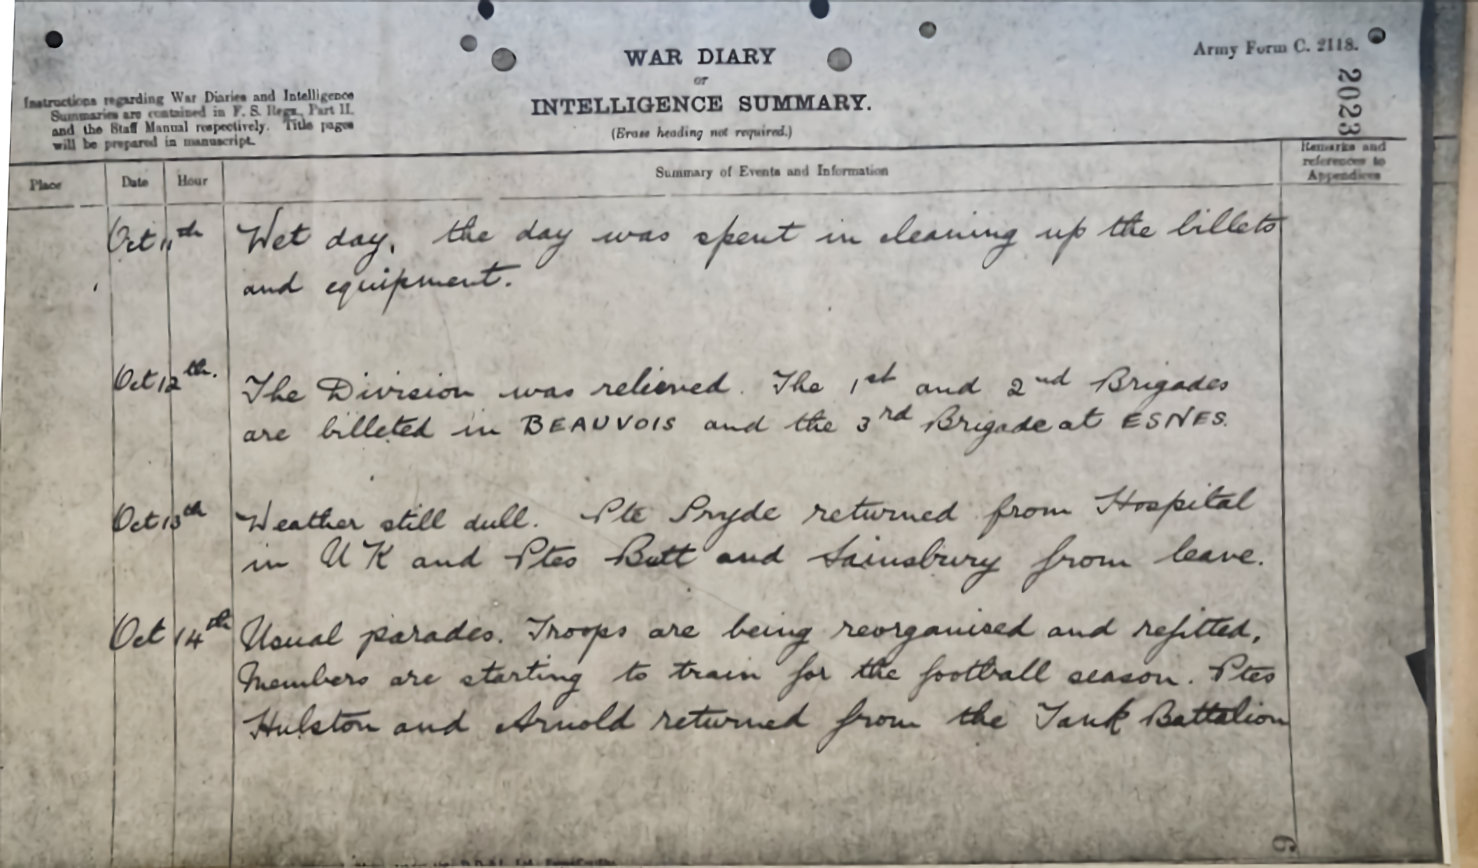 Army Form C. 2118.
WAR DIARY
or
INTELLIGENCE SUMMARY.
(Erase heading not required.)
Instructions regarding War Diaries and Intelligence
Summaries are contained in F. S. Regs., Part II.
and the Staff Manual respectively. Title pages
will be prepared in manuscript.
2023
Place Date Hour Summary of Events and Information Remarks and
references to
Appendices
Oct 11th Wet day, the day was spent in cleaning up the billets
and equipment.
Oct 12th. The Division was relieved. The 1st and 2nd Brigades
are billeted in BEAUVOIS and the 3rd Brigade at ESNES.
Oct 13th Weather still dull. Pte Pryde returned from Hospital
in U K and Ptes Butt and Sainsbury from leave.
Oct 14th Usual parades. Troops are being reorganised and refitted,
Members are starting to train for the football season. Ptes
Hulston and Arnold returned from the Tank Battalion
6